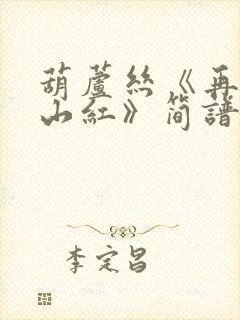 葫蘆絲《再
山紅》簡譜
李定昌